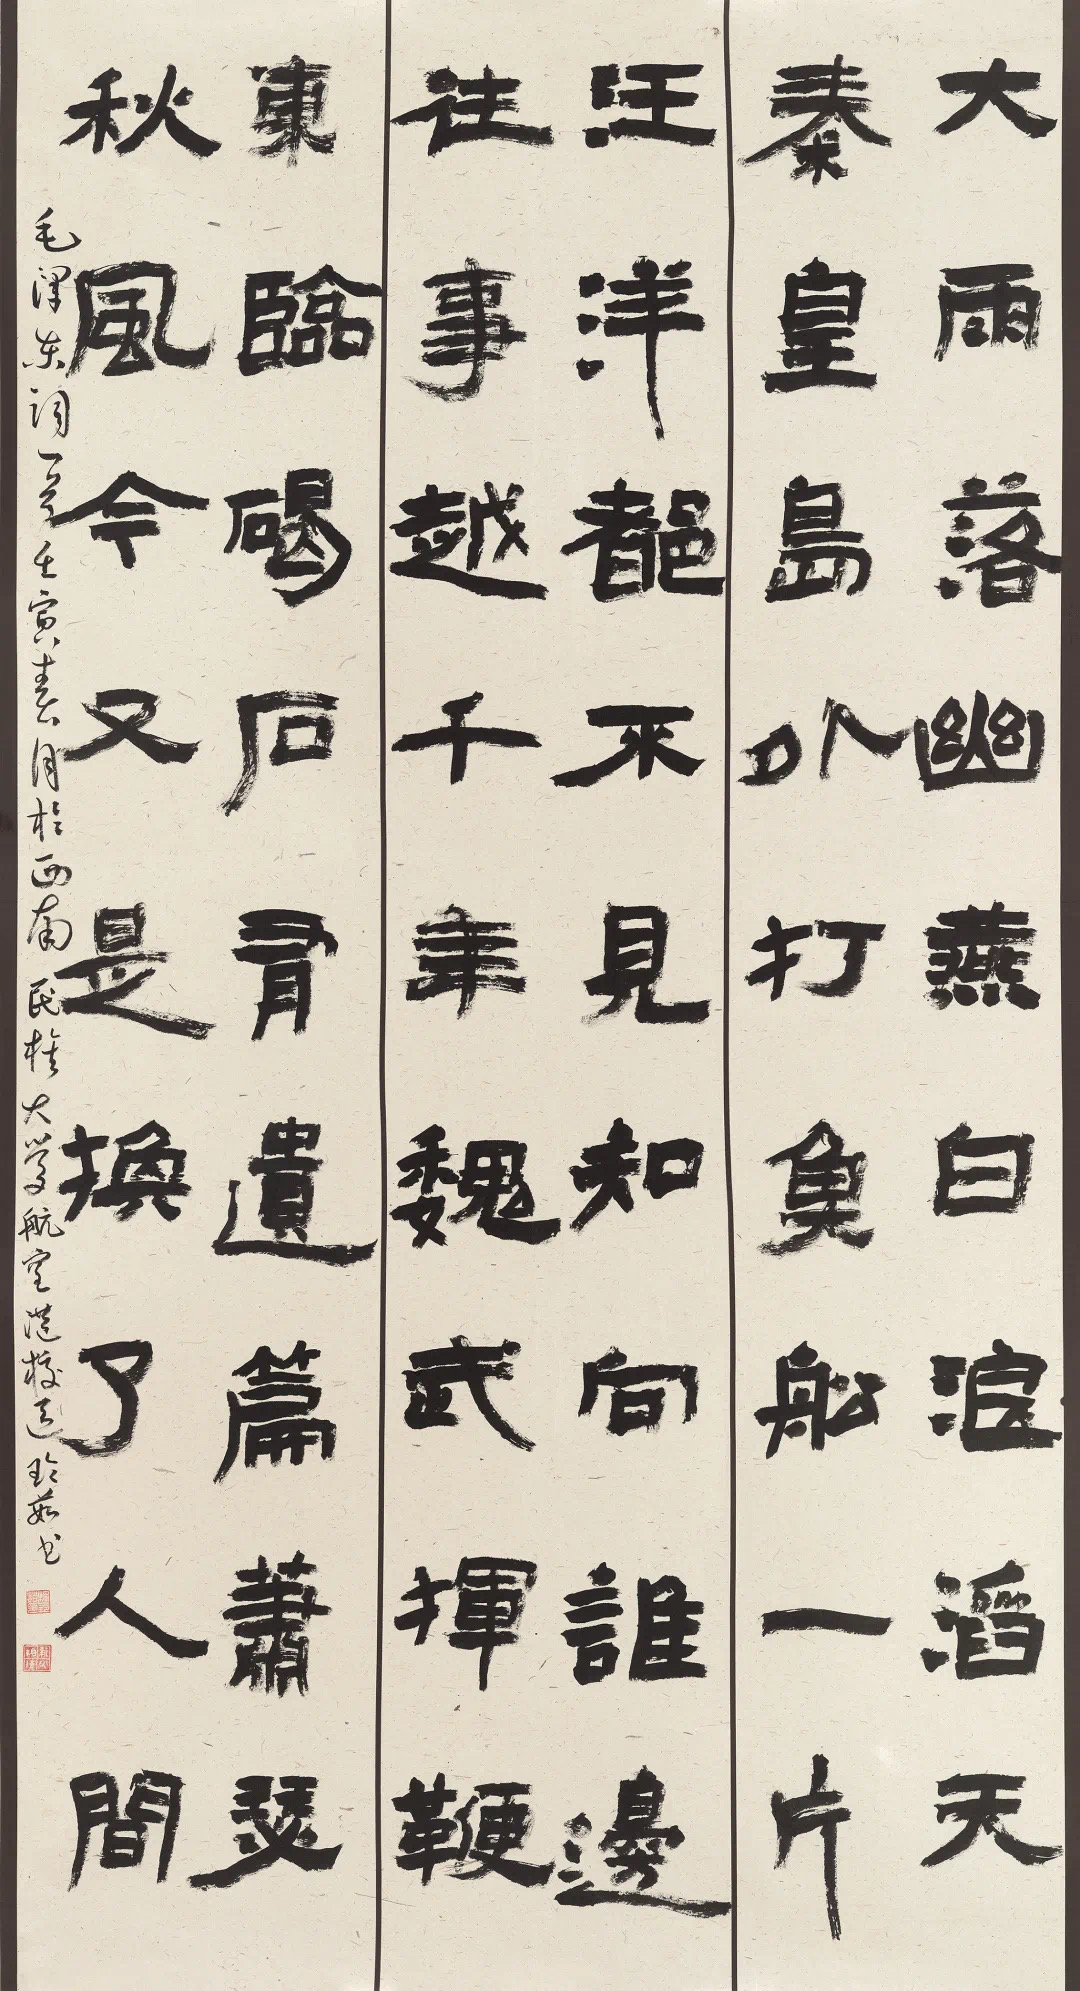 大雨落幽燕白浪滔天
秦皇島外打魚船一片
汪洋都不見知向誰邊
往事越千年魏武揮鞭
東臨碣石有遺篇蕭瑟
秋風今又是換了人間
毛泽东词一首壬寅春月於西南民族大学航空港校区玲茹书